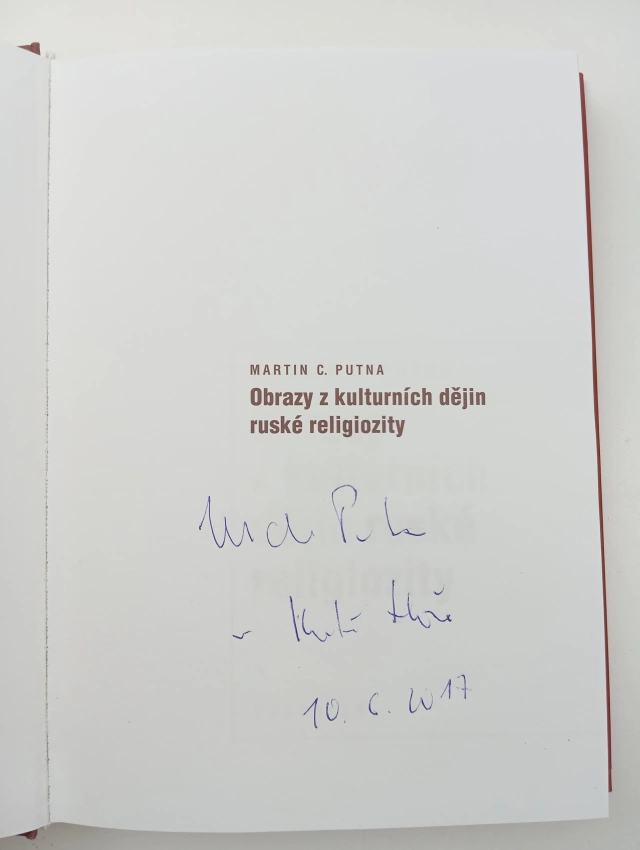 MARTIN C. PUTNA
Obrazy z kulturních dějin
ruské religiozity
Martin Putna
v Kutné Hoře
10. 6. 2017